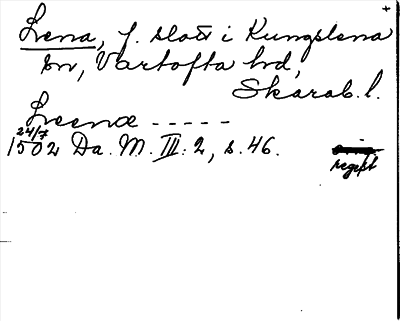 +
Lena, f. slott i Kungslena
sn, Vartofta hd,
Skarab. l.
Leenæ -----
24/7
1502 Da. M. III: 2, s. 46.
regist